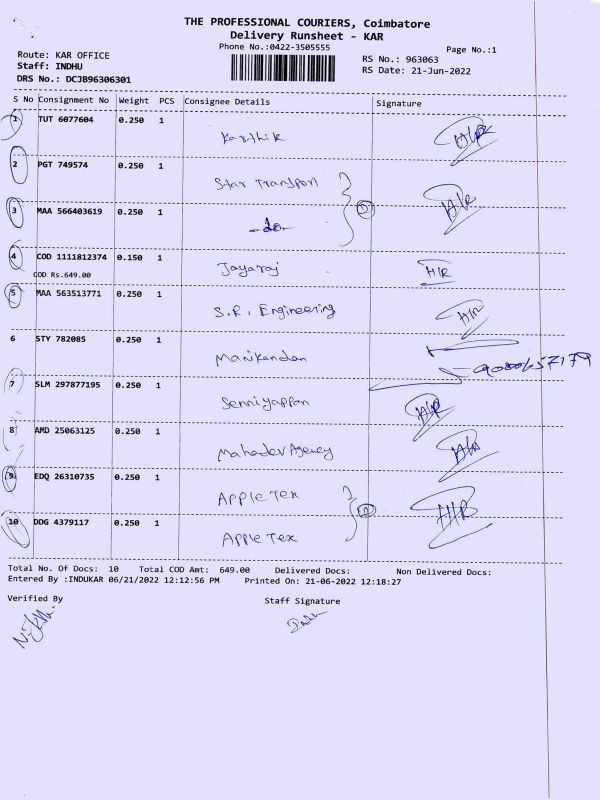 THE PROFESSIONAL COURIERS, Coimbatore
Delivery Runsheet - KAR
Phone No.:0422-3505555
Page No.:1
Route: KAR OFFICE
RS No.: 963063
Staff: INDHU
RS Date: 21-Jun-2022
DRS No.: DCJB96306301
S No Consignment No Weight PCS Consignee Details Signature
1 TUT 6077604 0.250 1 Karthik
2 PGT 749574 0.250 1 Star Transport
3 MAA 566403619 0.250 1 -do-
4 COD 1111812374 0.150 1 Jayaraj H/R
COD Rs.649.00
5 MAA 563513771 0.250 1 S.R. Engineering H/R
6 STY 782085 0.250 1 Manikandan
7 SLM 297877195 0.250 1 Senniyappan H/R
8 AMD 25063125 0.250 1 Mahadev Agency H/R
9 EDQ 26310735 0.250 1 Apple Tex
10 DDG 4379117 0.250 1 Apple Tex H/R
Total No. Of Docs: 10 Total COD Amt: 649.00 Delivered Docs: Non Delivered Docs:
Entered By :INDUKAR 06/21/2022 12:12:56 PM Printed On: 21-06-2022 12:18:27
Verified By Staff Signature